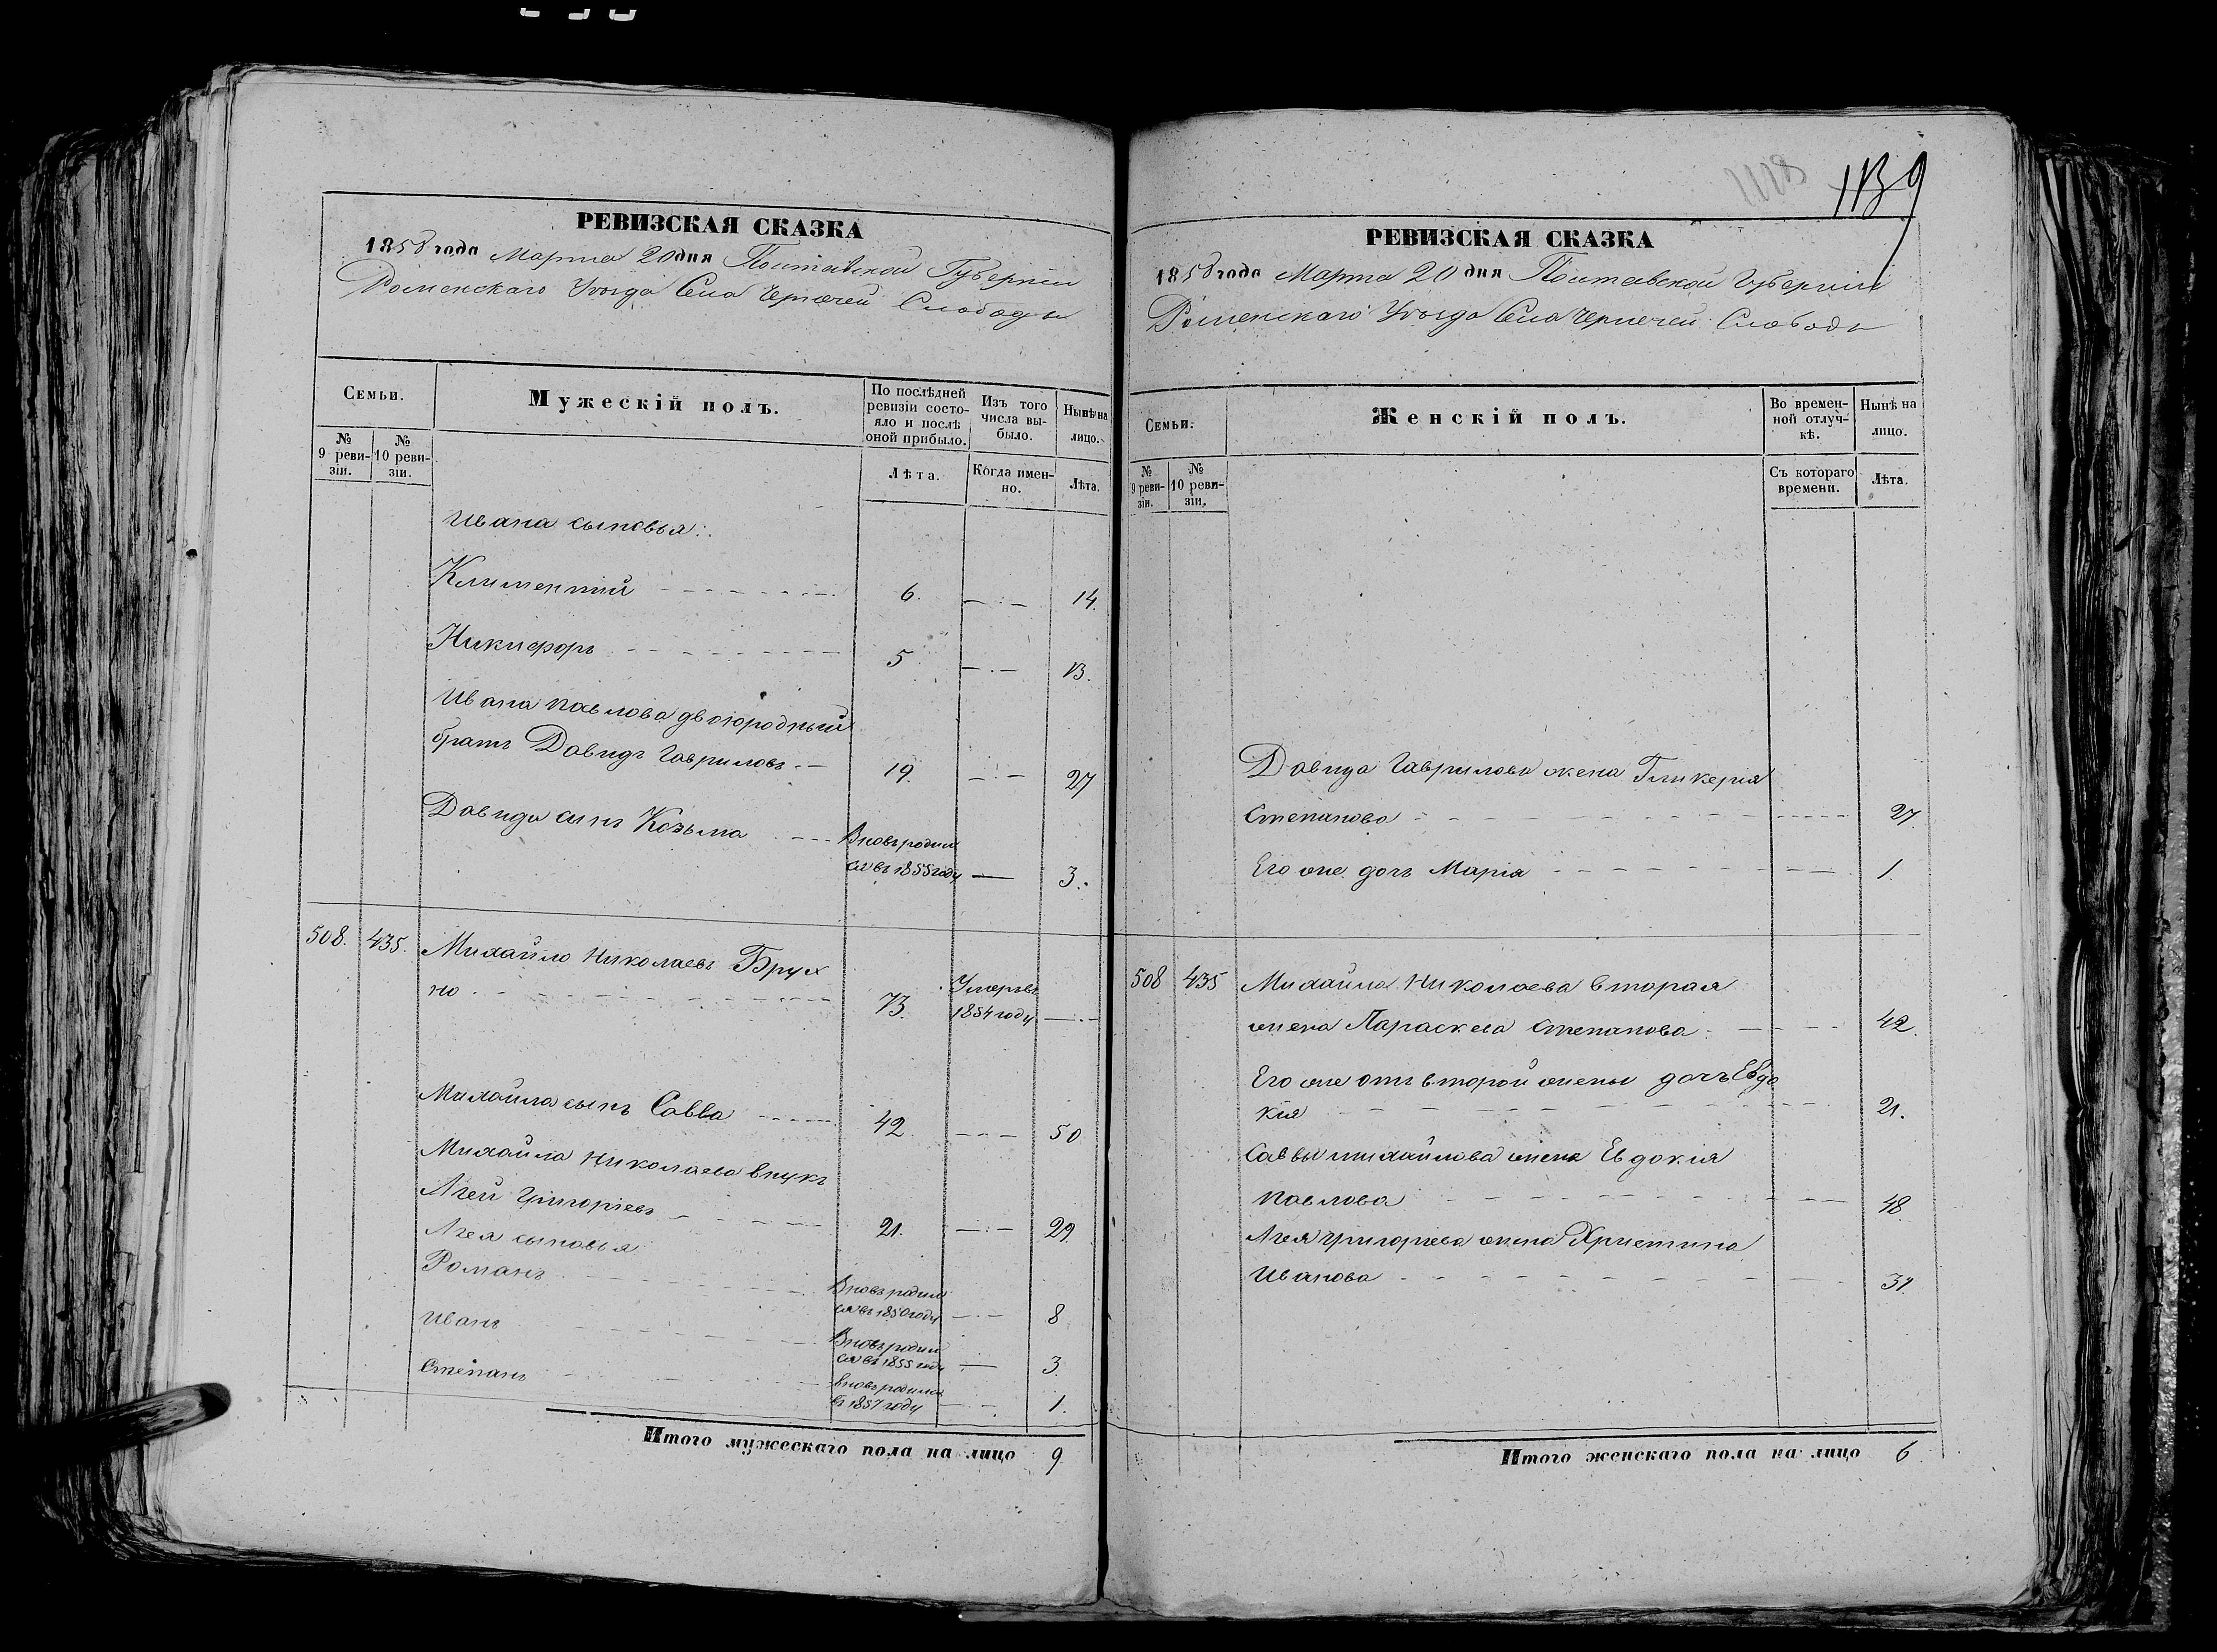 1139
РЕВИЗСКАЯ СКАЗКА
1858 года Марта 20 дня Полтавской Губернии
Роменскаго Уѣзда Села Чернечей Слободы
Семьи.
№ 9 реви-зіи.
№ 10 реви-зіи.
Мужескій полъ.
По послѣдней ревизіи состо-яло и послѣ оной прибыло.
Изъ того числа вы-было.
Нынѣ на лицо.
Лѣта.
Когда имен-но.
Лѣта.
Ивана сыновья:
Климентий 6. 14.
Никифоръ 5 13.
Ивана Павлова двоюродный
братъ Давидъ Гавриловъ 19. 27
Давида сынъ Козьма Вновь родил
ся въ 1855 году 3.
508. 435. Михайло Николаевъ Брух
но 73. Умеръ въ
1854 году
Михайла сынъ Савва 42 50
Михайла Николаева внукъ
Агей Григоріевъ 21. 29
Агея сыновья
Романъ Вновь родил
ся въ 1850 году 8
Иванъ Вновь родил
ся въ 1855 году 3
Степанъ вновь родился
въ 1857 году 1.
Итого мужескаго пола на лицо 9
РЕВИЗСКАЯ СКАЗКА
1858 года Марта 20 дня Полтавской Губерніи
Роменскаго Уѣзда Села Чернечей Слободы
Семьи.
№ 9 реви-зіи.
№ 10 реви-зіи.
Женскій полъ.
Во времен-ной отлуч-кѣ.
Нынѣ на лицо.
Съ котораго времени.
Лѣта.
Давида Гаврилова жена Гликерия
Степанова 27.
Его же дочь Марія 1.
508 435 Михайла Николаева вторая
жена Параскева Степанова 42.
Его же отъ второй жены дочь Евдо
кія 21.
Саввы Михайлова жена Евдокія
Павлова 48
Агея Григоріева жена Христина
Иванова 31.
Итого женскаго пола на лицо 6